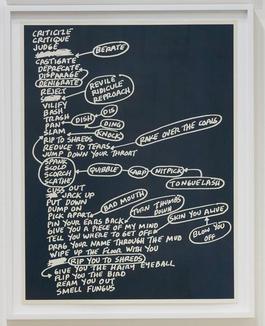 CRITICIZE
CRITIQUE
JUDGE
BERATE
CASTIGATE
DEPRECATE
DISPARAGE
DENIGRATE
REVILE
RIDICULE
REPROACH
REJECT
VILIFY
BASH
TRASH
PAN
DISH
DIS
DING
KNOCK
SLAM
RIP TO SHREDS
RAKE OVER THE COALS
REDUCE TO TEARS
JUMP DOWN YOUR THROAT
SPANK
SCOLD
SCORCH
SCATHE
QUIBBLE
CARP
NITPICK
TONGUELASH
CUSS OUT
JACK UP
PUT DOWN
DUMP ON
PICK APART
BAD MOUTH
TURN THUMBS
DOWN
SKIN YOU ALIVE
PIN YOUR EARS BACK
GIVE YOU A PIECE OF MY MIND
TELL YOU WHERE TO GET OFF
BLOW YOU
OFF
DRAG YOUR NAME THROUGH THE MUD
WIPE UP THE FLOOR WITH YOU
RIP YOU TO SHREDS
GIVE YOU THE HAIRY EYEBALL
FLIP YOU THE BIRD
REAM YOU OUT
SMELL FUNGUS